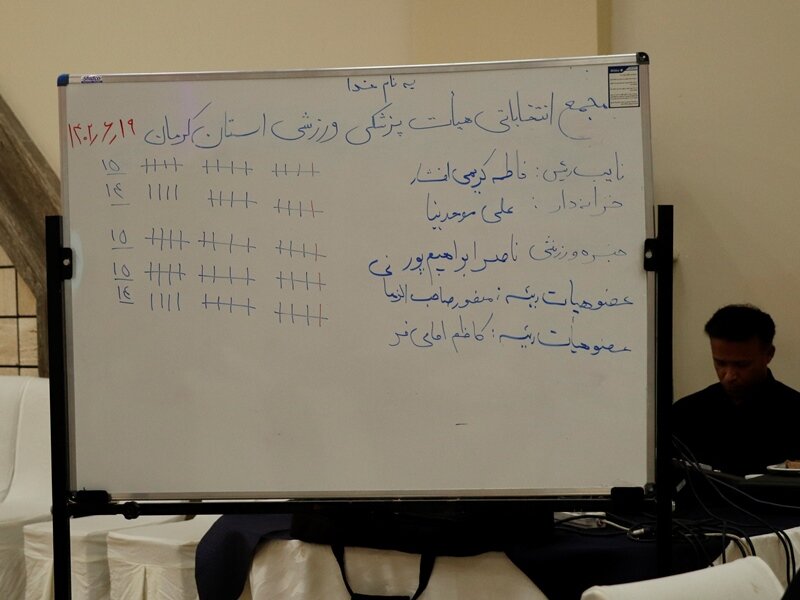 به نام خدا
مجمع انتخاباتی هیأت پزشکی ورزشی استان کرمان ۱۴۰۲٫۶٫۱۹
نایب رئیس: فاطمه کریمی افشار ۱۵
خزانه‌دار: علی موحدنیا ۱۴
ورزشی ناصر ابراهیم پور ۱۵
عضو هیات رئیسه: منصور صاحب الزما نی ۱۵
عضو هیأت رئیسه: کاظم امامی فر ۱۴